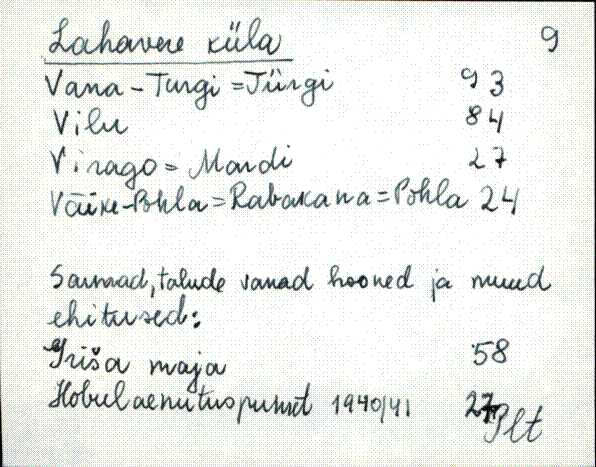 Lahavere küla 9
Vana-Turgi=Jürgi 93
Vilu 84
Virago=Mardi 27
Väike-Pohla=Rabakana=Pohla 24
Saunad, talude vanad hooned ja muud
ehitused:
Griša maja 58
Hobulaenutuspunkt 1940/41 27